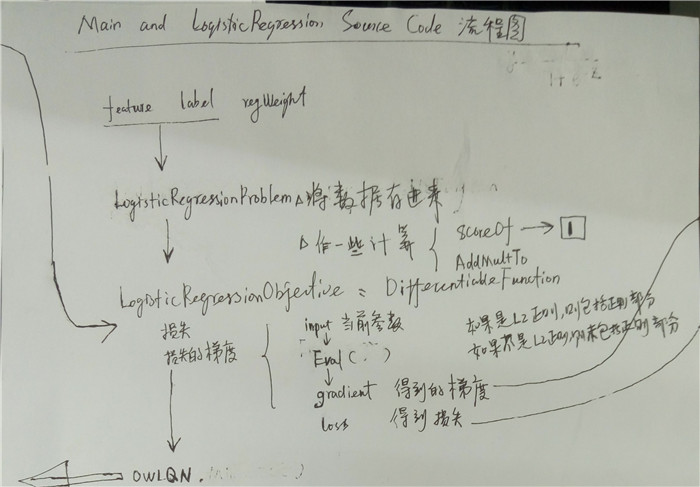 Main and LogisticRegression Source Code 流程图
feature label regWeight
LogisticRegressionProblem △将数据存进来
△作一些计算 { ScoreOf → 1
AddMultTo
LogisticRegressionObjective : DifferentiableFunction
损失
损失的梯度
input 当前参数
Eval( )
gradient 得到的梯度
loss 得到损失
如果是L2正则,则包括正则部分
如果不是L2正则,则未包括正则部分
OWLQN.